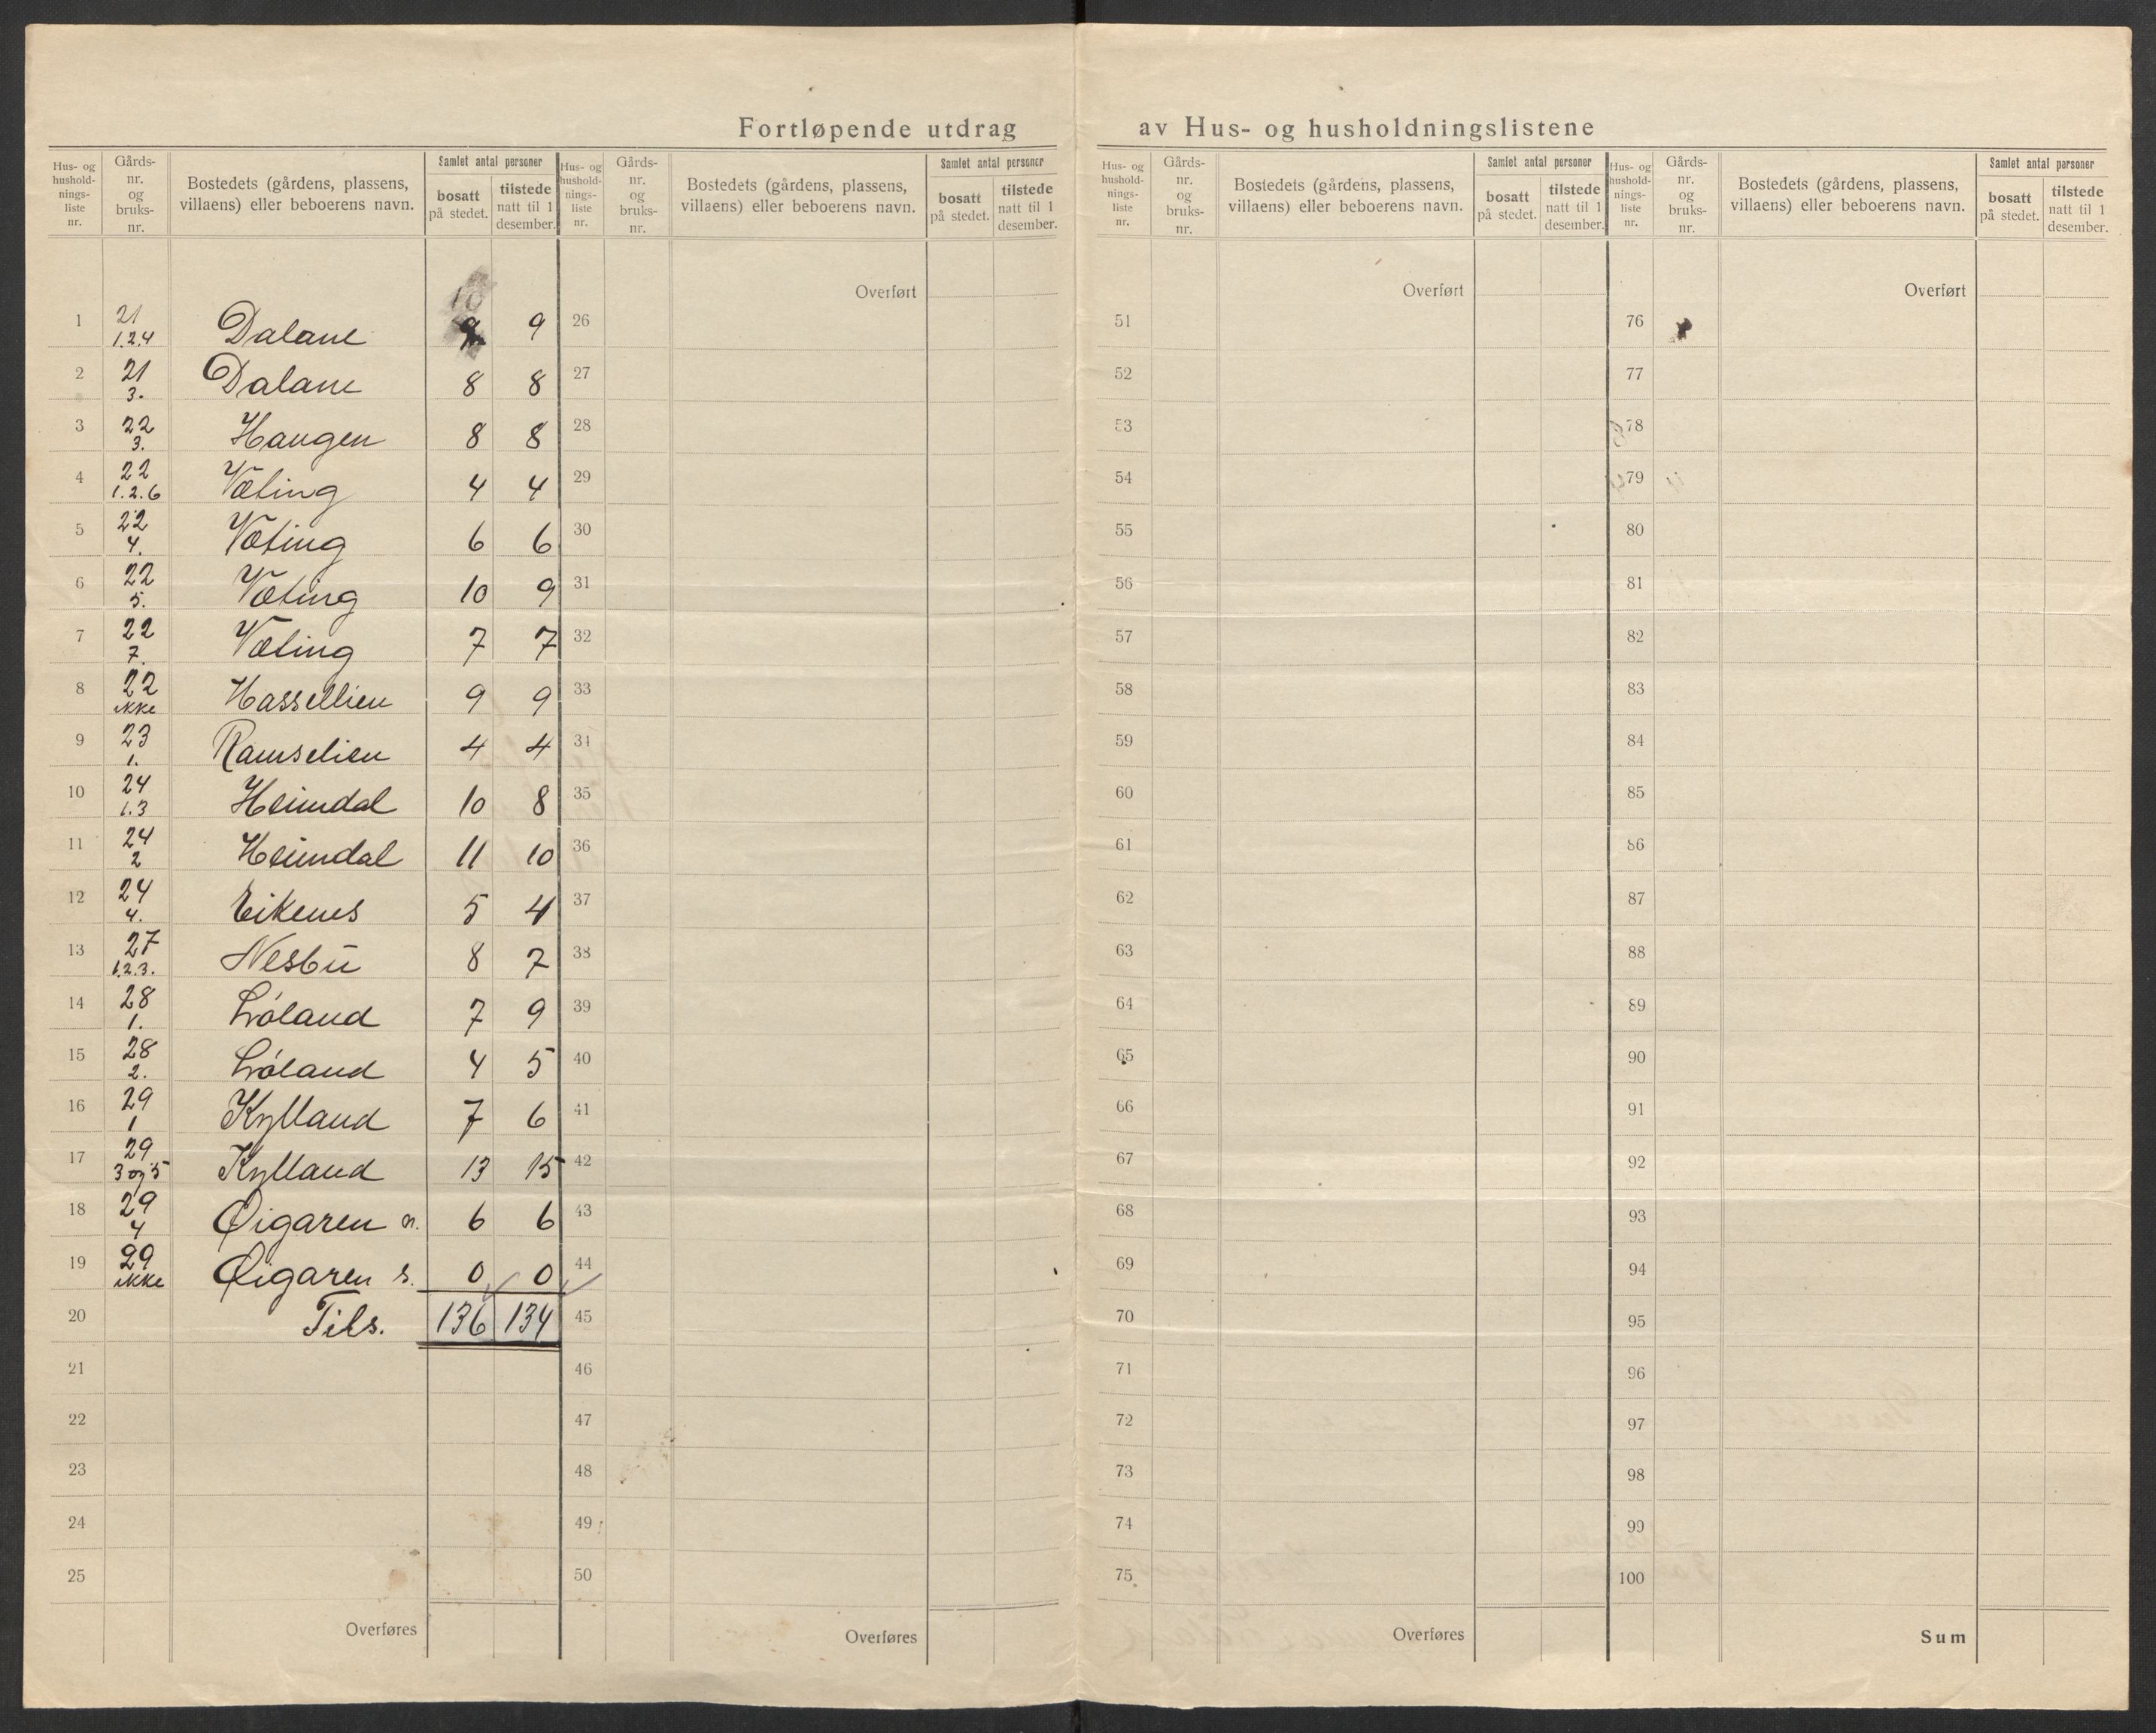 Fortløpende utdrag av Hus- og husholdningslistene
Hus- og hushold-nings-liste nr. | Gårds-nr. og bruks-nr. | Bostedets (gårdens, plassens, villaens) eller beboerens navn. | Samlet antal personer | bosatt på stedet. | tilstede natt til 1 desember.
Hus- og hushold-nings-liste nr. | Gårds-nr. og bruks-nr. | Bostedets (gårdens, plassens, villaens) eller beboerens navn. | Samlet antal personer | bosatt på stedet. | tilstede natt til 1 desember.
Hus- og hushold-nings-liste nr. | Gårds-nr. og bruks-nr. | Bostedets (gårdens, plassens, villaens) eller beboerens navn. | Samlet antal personer | bosatt på stedet. | tilstede natt til 1 desember.
Hus- og hushold-nings-liste nr. | Gårds-nr. og bruks-nr. | Bostedets (gårdens, plassens, villaens) eller beboerens navn. | Samlet antal personer | bosatt på stedet. | tilstede natt til 1 desember.
10
1 21 1.2.4 Dalane 9 9
2 21 3. Dalane 8 8
3 22 3. Haugen 8 8
4 22 1.2.6 Væting 4 4
5 22 4. Væting 6 6
6 22 5. Væting 10 9
7 22 7. Væting 7 7
8 22 ikke Hassellien 9 9
9 23 1. Ramselien 4 4
10 24 1.3 Heimdal 10 8
11 24 2 Heimdal 11 10
12 24 4. Eikenes 5 4
13 27 1.2.3. Nesbü 8 7
14 28 1. Løland 7 9
15 28 2. Løland 4 5
16 29 1 Kylland 7 6
17 29 3 og 5 Kylland 13 15
18 29 4 Øigaren n. 6 6
19 29 ikke Øigaren s. 0 0
20 Tils. 136 134
21
22
23
24
25
Overføres
Overført
26
27
28
29
30
31
32
33
34
35
36
37
38
39
40
41
42
43
44
45
46
47
48
49
50
Overføres
Overført
51
52
53
54
55
56
57
58
59
60
61
62
63
64
65
66
67
68
69
70
71
72
73
74
75
Overføres
Overført
76
77
78
79
80
81
82
83
84
85
86
87
88
89
90
91
92
93
94
95
96
97
98
99
100
Sum